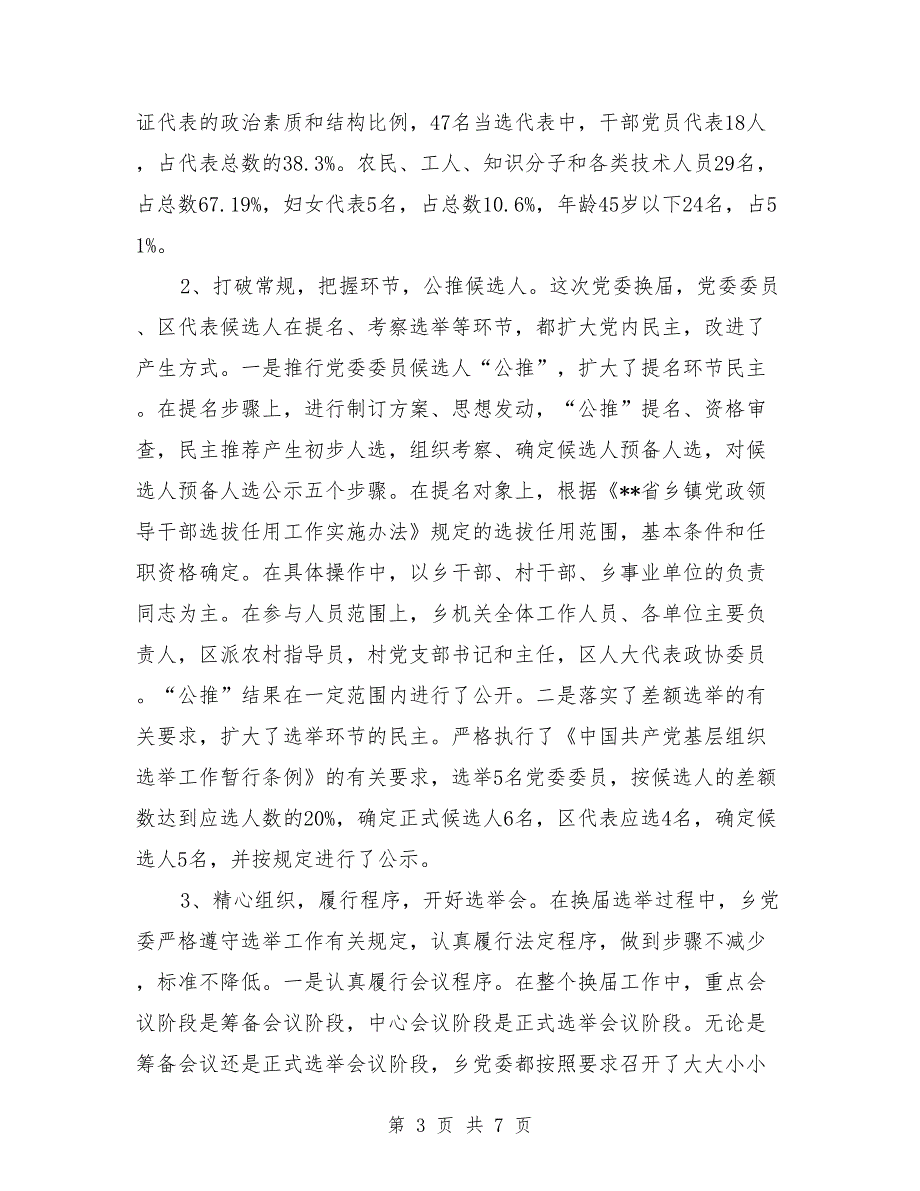 证代表的政治素质和结构比例，47名当选代表中，干部党员代表18人
，占代表总数的38.3%。农民、工人、知识分子和各类技术人员29名，
占总数67.19%，妇女代表5名，占总数10.6%，年龄45岁以下24名，占5
1%。
2、打破常规，把握环节，公推候选人。这次党委换届，党委委员
、区代表候选人在提名、考察选举等环节，都扩大党内民主，改进了
产生方式。一是推行党委委员候选人“公推”，扩大了提名环节民主
。在提名步骤上，进行制订方案、思想发动，“公推”提名、资格审
查，民主推荐产生初步人选，组织考察、确定候选人预备人选，对候
选人预备人选公示五个步骤。在提名对象上，根据《**省乡镇党政领
导干部选拔任用工作实施办法》规定的选拔任用范围，基本条件和任
职资格确定。在具体操作中，以乡干部、村干部、乡事业单位的负责
同志为主。在参与人员范围上，乡机关全体工作人员、各单位主要负
责人，区派农村指导员，村党支部书记和主任，区人大代表政协委员
。“公推”结果在一定范围内进行了公开。二是落实了差额选举的有
关要求，扩大了选举环节的民主。严格执行了《中国共产党基层组织
选举工作暂行条例》的有关要求，选举5名党委委员，按候选人的差额
数达到应选人数的20%，确定正式候选人6名，区代表应选4名，确定候
选人5名，并按规定进行了公示。
3、精心组织，履行程序，开好选举会。在换届选举过程中，乡党
委严格遵守选举工作有关规定，认真履行法定程序，做到步骤不减少
，标准不降低。一是认真履行会议程序。在整个换届工作中，重点会
议阶段是筹备会议阶段，中心会议阶段是正式选举会议阶段。无论是
筹备会议还是正式选举会议阶段，乡党委都按照要求召开了大大小小
第 3 页 共 7 页